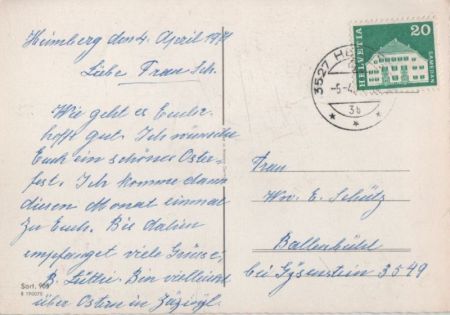 Heimberg den 4. April 1971
Liebe Frau Sch.
Wie geht es Euch
hoffe gut. Ich wünsche
Euch ein schönes Oster-
fest. Ich komme dann
diesen Monat einmal
zu Euch. Bis dahin
empfanget viele Grüsse,
B. Lüthi. Bin vielleicht
über Ostern in Zäziwyl.
Sort. 968
HELVETIA
20
SAMEDAN
3527 H
-5-4
3b
Frau
Ww. E. Schütz
Ballenbühl
bei Gysenstein 3549